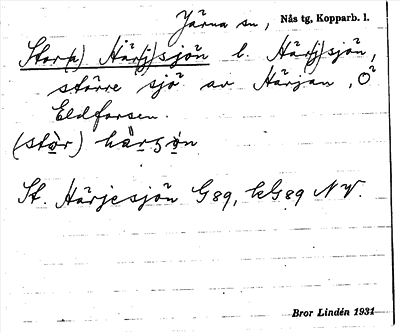 Järna sn, Nås tg, Kopparb. l.
Stor(a) Här(j)sjön l. Här(j)sjön,
större sjö av Härjan, Ö
Eldforsen.
St. Härjesjön G89, kG89 NV.
Bror Lindén 1931